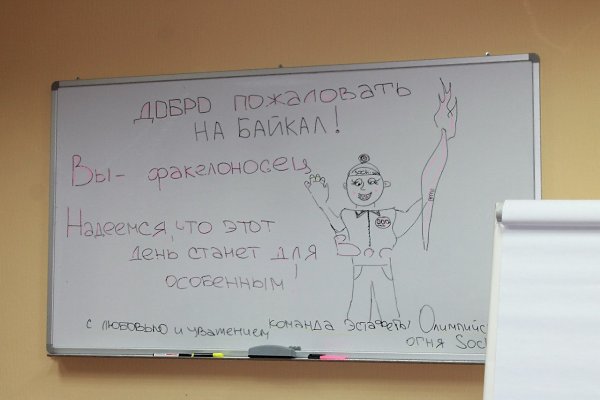 ДОБРО ПОЖАЛОВАТЬ
НА БАЙКАЛ!
Вы- факелоносец
Надеемся, что этот
день станет для Вас
особенным!
с любовью и уважением команда эстафеты Олимпийс
огня Soc